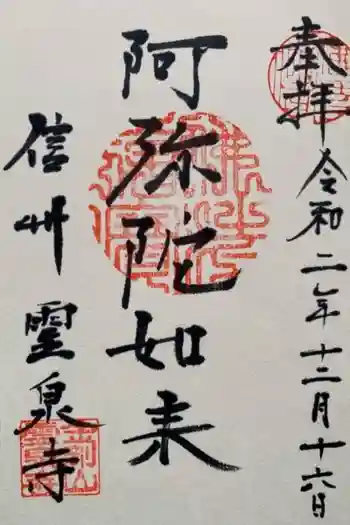 奉拝 令和二年十二月十六日
阿弥陀如来
信州 霊泉寺